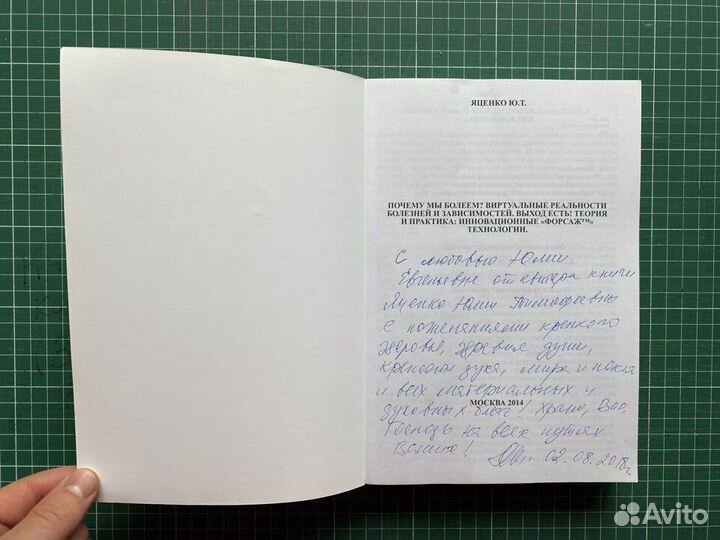 ЯЦЕНКО Ю.Т.
ПОЧЕМУ МЫ БОЛЕЕМ? ВИРТУАЛЬНЫЕ РЕАЛЬНОСТИ
БОЛЕЗНЕЙ И ЗАВИСИМОСТЕЙ. ВЫХОД ЕСТЬ! ТЕОРИЯ
И ПРАКТИКА: ИННОВАЦИОННЫЕ «ФОРСАЖ™»
ТЕХНОЛОГИИ.
С любовью Юлии
Евгеньевне от автора книги
Яценко Юлии Тимофеевны
с пожеланиями крепкого
здоровья, здравия души,
крепости духа, мира и покоя
и всех материальных и
МОСКВА 2014
духовных благ! Храни, Вас
Господь на всех путях
Ваших!
02.08.2018г.
Avito